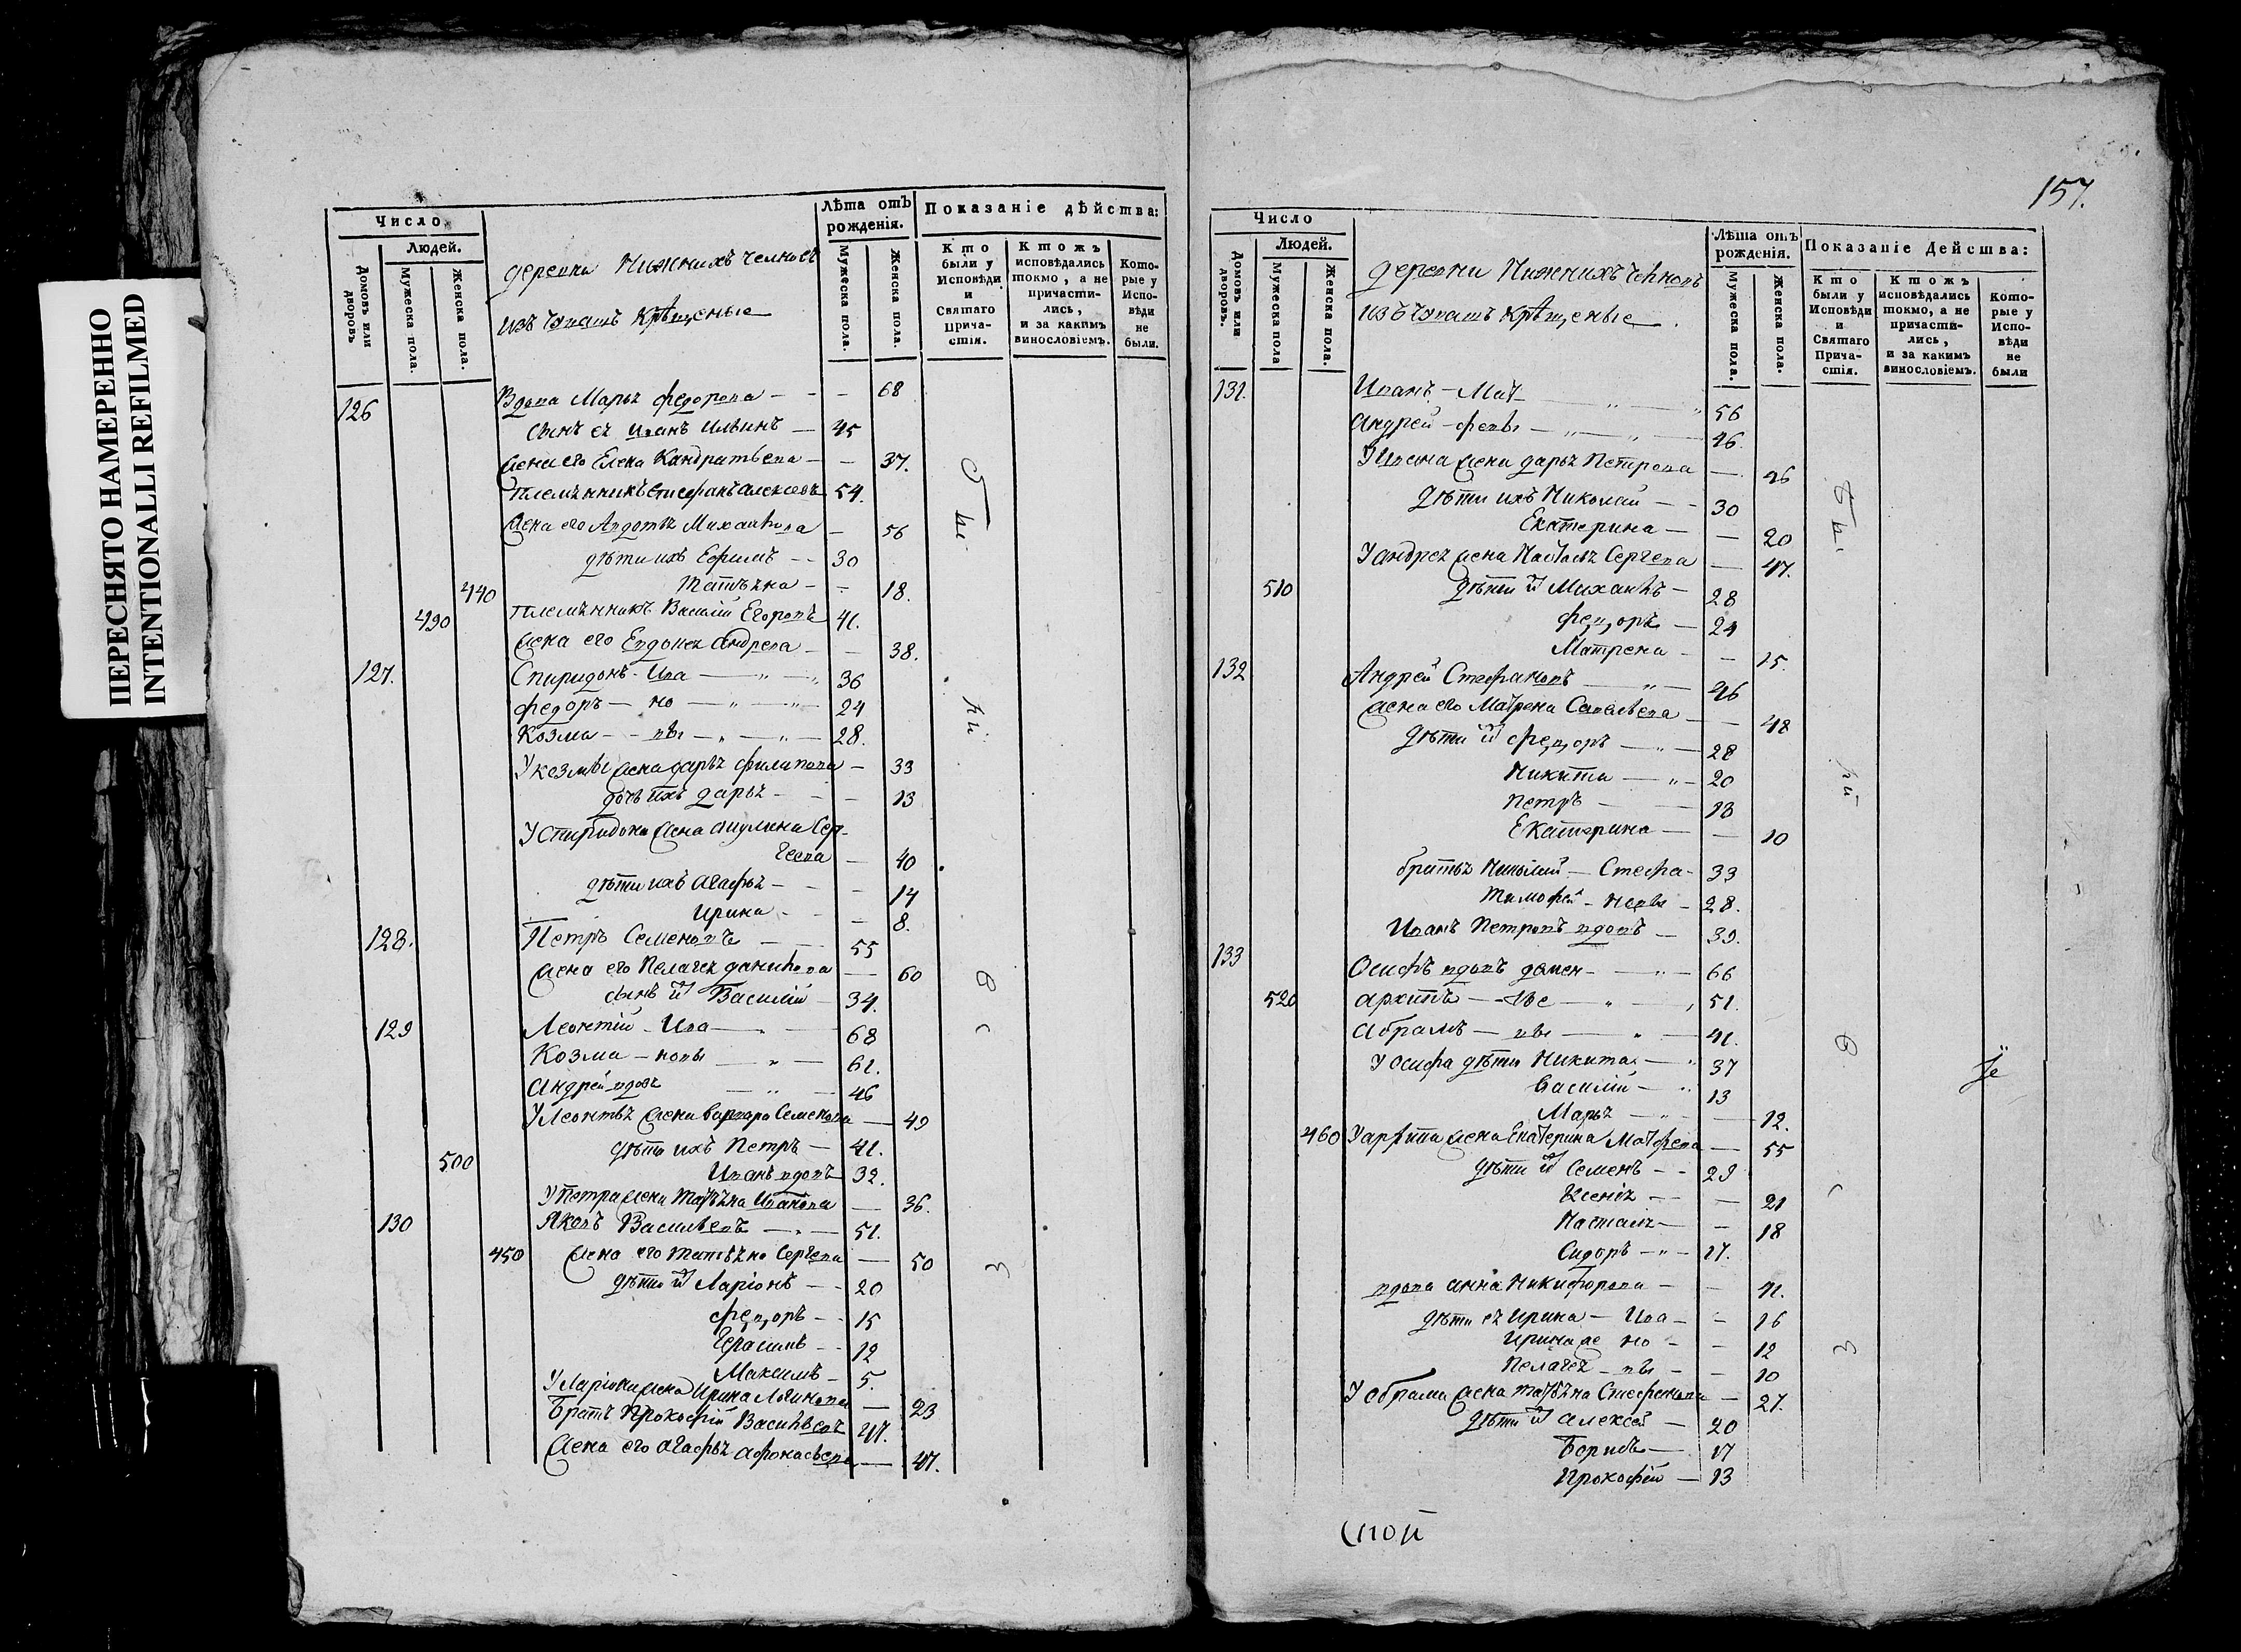 ПЕРЕСНЯТО НАМЕРЕННО
INTENTIONALLI REFILMED
Число.
Людей.
Домовъ или дворовъ
Мужеска пола.
Женска пола.
деревни Нижнихъ челновъ
изъ Чювашъ крѣщеные
Лѣта отъ рожденія.
Мужеска пола.
Женска пола.
Показаніе дѣйства:
Кто были у Исповѣди и Святаго Прича-стія.
Ктожъ исповѣдались токмо, а не причасти-лись, и за какимъ винословіемъ.
Кото-рые у Испо-вѣди не были.
126 Вдова Марья федорова - - - 68
сынъ ея иванъ Ильинъ — 45
жена его Елена Кандратьева — - 37.
племянникъ стефанъ алексеевъ 54.
жена его Авдотья Михаилова - 56
дѣти ихъ Ефимъ - - 30
440 Татьяна - - 18.
490 племянникъ Василій Егоровъ 41.
жена его Евдокея Андреева - - 38.
127. Спиридонъ - Ива — „ — „ 36
федоръ — но — „ — „ 24
Козма - - вы - „ — „ — 28.
У козмы жена дарья филипова — 33
дочь ихъ дарья - - - 13
У спиридона жена акулина Сер-
геева — 40
дѣти ихъ Агафья - - - 14
Ирина - - - 8.
128. Петръ Семеновъ — — 55
жена его Пелагея данилова — 60
сынъ их Василій — 34.
129 Леонтій - Ива — „ — 68
Козма — новы — „ — 61.
Андрей вдовъ — „ — 46
У Леонтья жена варвара Семенова — 49
дѣти ихъ Петръ — 41.
500 Иванъ вдовъ 32.
У Петра жена Татьяна Иванова — 36.
130 Яковъ Васильевъ — „ — 51.
450 жена его татьяна Сергеева — 50
дѣти их Ларіонъ - - 20
федоръ - - 15
Герасимъ - - 12
Максимъ - 5.
У Ларіона жена Ирина Логинова — 23
Братъ Прокофій Васильевъ 47.
жена его Агафья афонасьева — 47.
157.
Число
Людей.
Домовъ или дворовъ.
Мужеска пола
Женска пола.
деревни Нижнихъ Челновъ
изъ Чювашъ крѣщеные
Лѣта отъ рожденія.
Мужеска пола.
Женска пола.
Показаніе Дейсшва:
Кто были у Исповѣди и Святаго Прича-стія.
Ктожъ исповѣдались токмо, а не причасти-лись, и за какимъ винословіемъ.
Кото-рые у Испо-вѣди не были
131. Иванъ - Мат — „ — „ 56
Андрей - февы — „ — „ — 46.
У Ивана жена дарья Петрова — 46
дѣти ихъ Николай — - 30
Екатерина — — 20
У андрея жена Настасья Сергеева — 47.
510 дѣти их Михаилъ — 28
федоръ — 24
Матрена - - 15.
132 Андрей Стефановъ — „ — 46
жена его Матрена Савельева — — 48
дѣти их федоръ — „ — 28
Никита — „ — 20
петръ — — 13
Екатерина — — 10
братья Николай — Стефа- 33
Тимофей - новы - 28.
Иванъ Петровъ вдовъ — 39.
133 Осифъ вдовъ демен- — „ — 66
520 архипъ — — „ — 51.
Абрамъ — вы — „ — 41.
У осифа дѣти Никита — „ 37
Василій — „ 13
Марья — „ — 12.
460 У архипа жена Екатерина Матфеева — 55
дѣти их Семенъ - - 29
Ксенія - - — 21
Настасья — - 18
Сидоръ - „ - 17.
вдова анна Никифорова — - 41.
дѣти ея Ирина — Ива — - 16
Ирина же но - - 12
Пелагея - вы - - 10
У абрама жена татьяна Стефанова — 27.
дѣти их алексей — 20
Борисъ — 17
Прокофей — 13